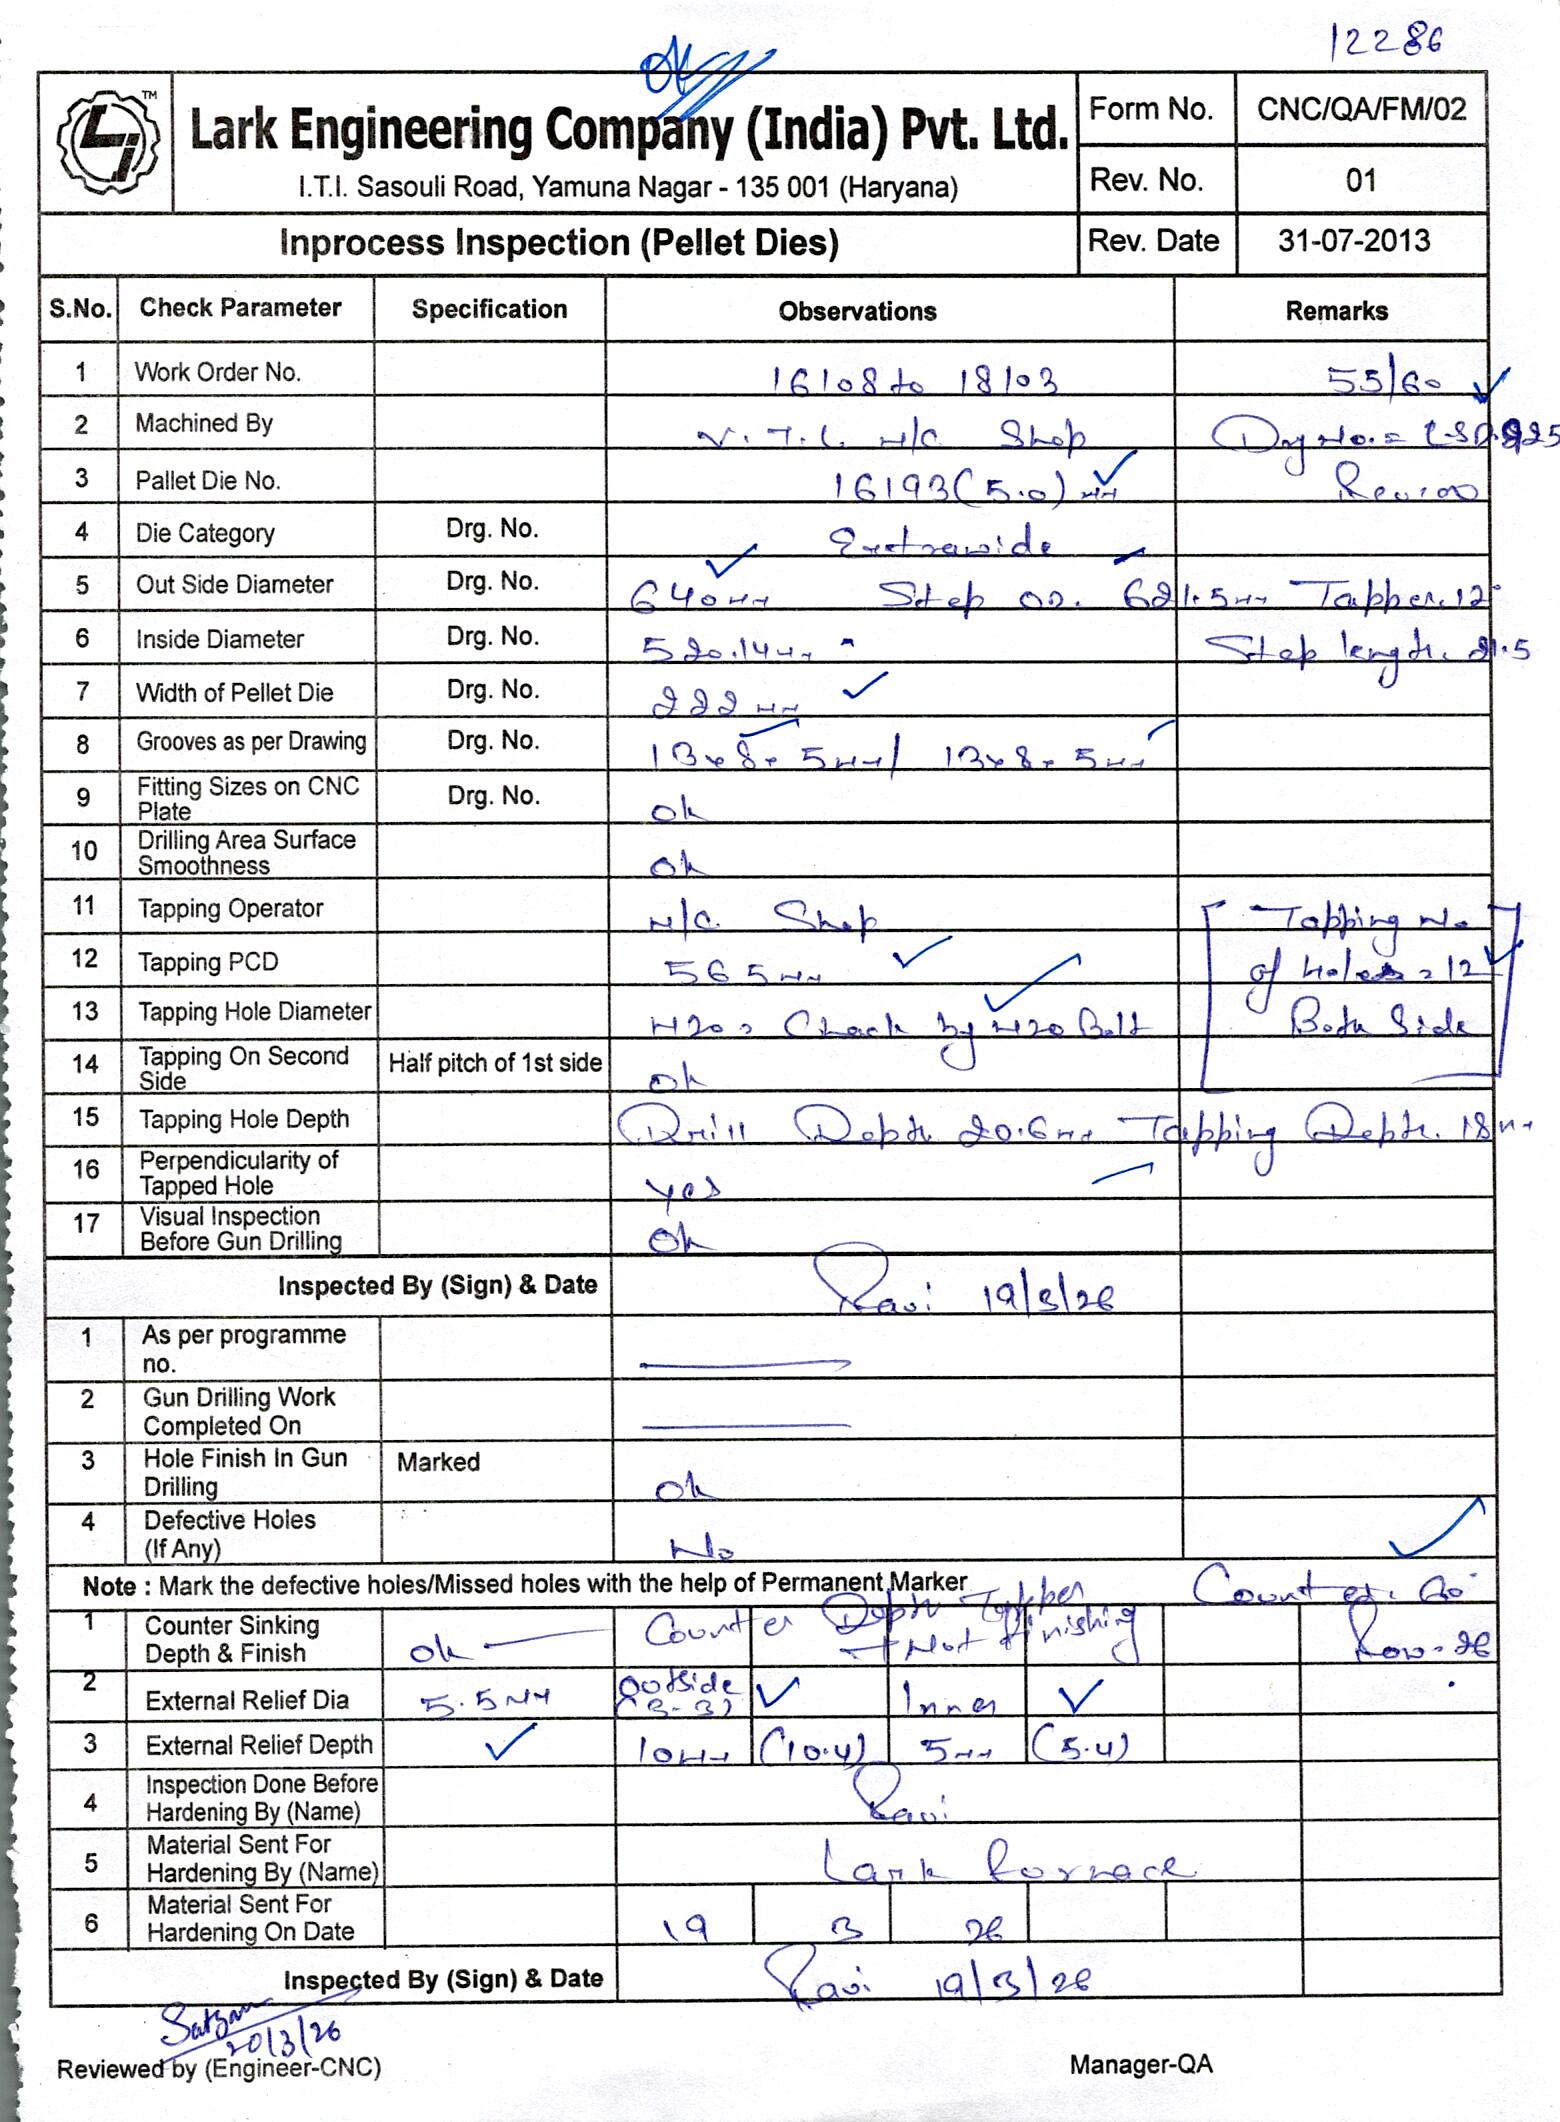 12286
ok
TM
Lark Engineering Company (India) Pvt. Ltd.
I.T.I. Sasouli Road, Yamuna Nagar - 135 001 (Haryana)
Form No. CNC/QA/FM/02
Rev. No. 01
Inprocess Inspection (Pellet Dies) Rev. Date 31-07-2013
S.No. Check Parameter Specification Observations Remarks
1 Work Order No. 16108 to 18103 55/60
2 Machined By V.T.L. M/C Shop Drg No. =
3 Pallet Die No. 16193 (5.0) mm
4 Die Category Drg. No. Extrawide
5 Out Side Diameter Drg. No. 640mm Step OD. 621.5mm Tapper.12°
6 Inside Diameter Drg. No. 520.14mm Step length. 21.5
7 Width of Pellet Die Drg. No. 222mm
8 Grooves as per Drawing Drg. No. 13x8x5mm/ 13x8x5mm
9 Fitting Sizes on CNC Plate Drg. No. ok
10 Drilling Area Surface Smoothness ok
11 Tapping Operator M/C Shop Tapping No
12 Tapping PCD 565mm of Holes = 12
13 Tapping Hole Diameter M20 = Chack by M20 Bolt Both Side
14 Tapping On Second Side Half pitch of 1st side ok
15 Tapping Hole Depth Drill Depth 20.6mm Tapping Depth. 18mm
16 Perpendicularity of Tapped Hole yes
17 Visual Inspection Before Gun Drilling ok
Inspected By (Sign) & Date Ravi 19/3/26
1 As per programme no.
2 Gun Drilling Work Completed On
3 Hole Finish In Gun Drilling Marked ok
4 Defective Holes (If Any) No
Note : Mark the defective holes/Missed holes with the help of Permanent Marker
Counter. 60°
1 Counter Sinking Depth & Finish ok Counter Depth Tapper Not finishing Row-26
2 External Relief Dia 5.5mm outside (3-3) Inner
3 External Relief Depth 10mm (10.4) 5mm (5.4)
4 Inspection Done Before Hardening By (Name) Ravi
5 Material Sent For Hardening By (Name) Lark Fornace
6 Material Sent For Hardening On Date 19 3 26
Inspected By (Sign) & Date Ravi 19/3/26
20/3/26
Reviewed by (Engineer-CNC) Manager-QA